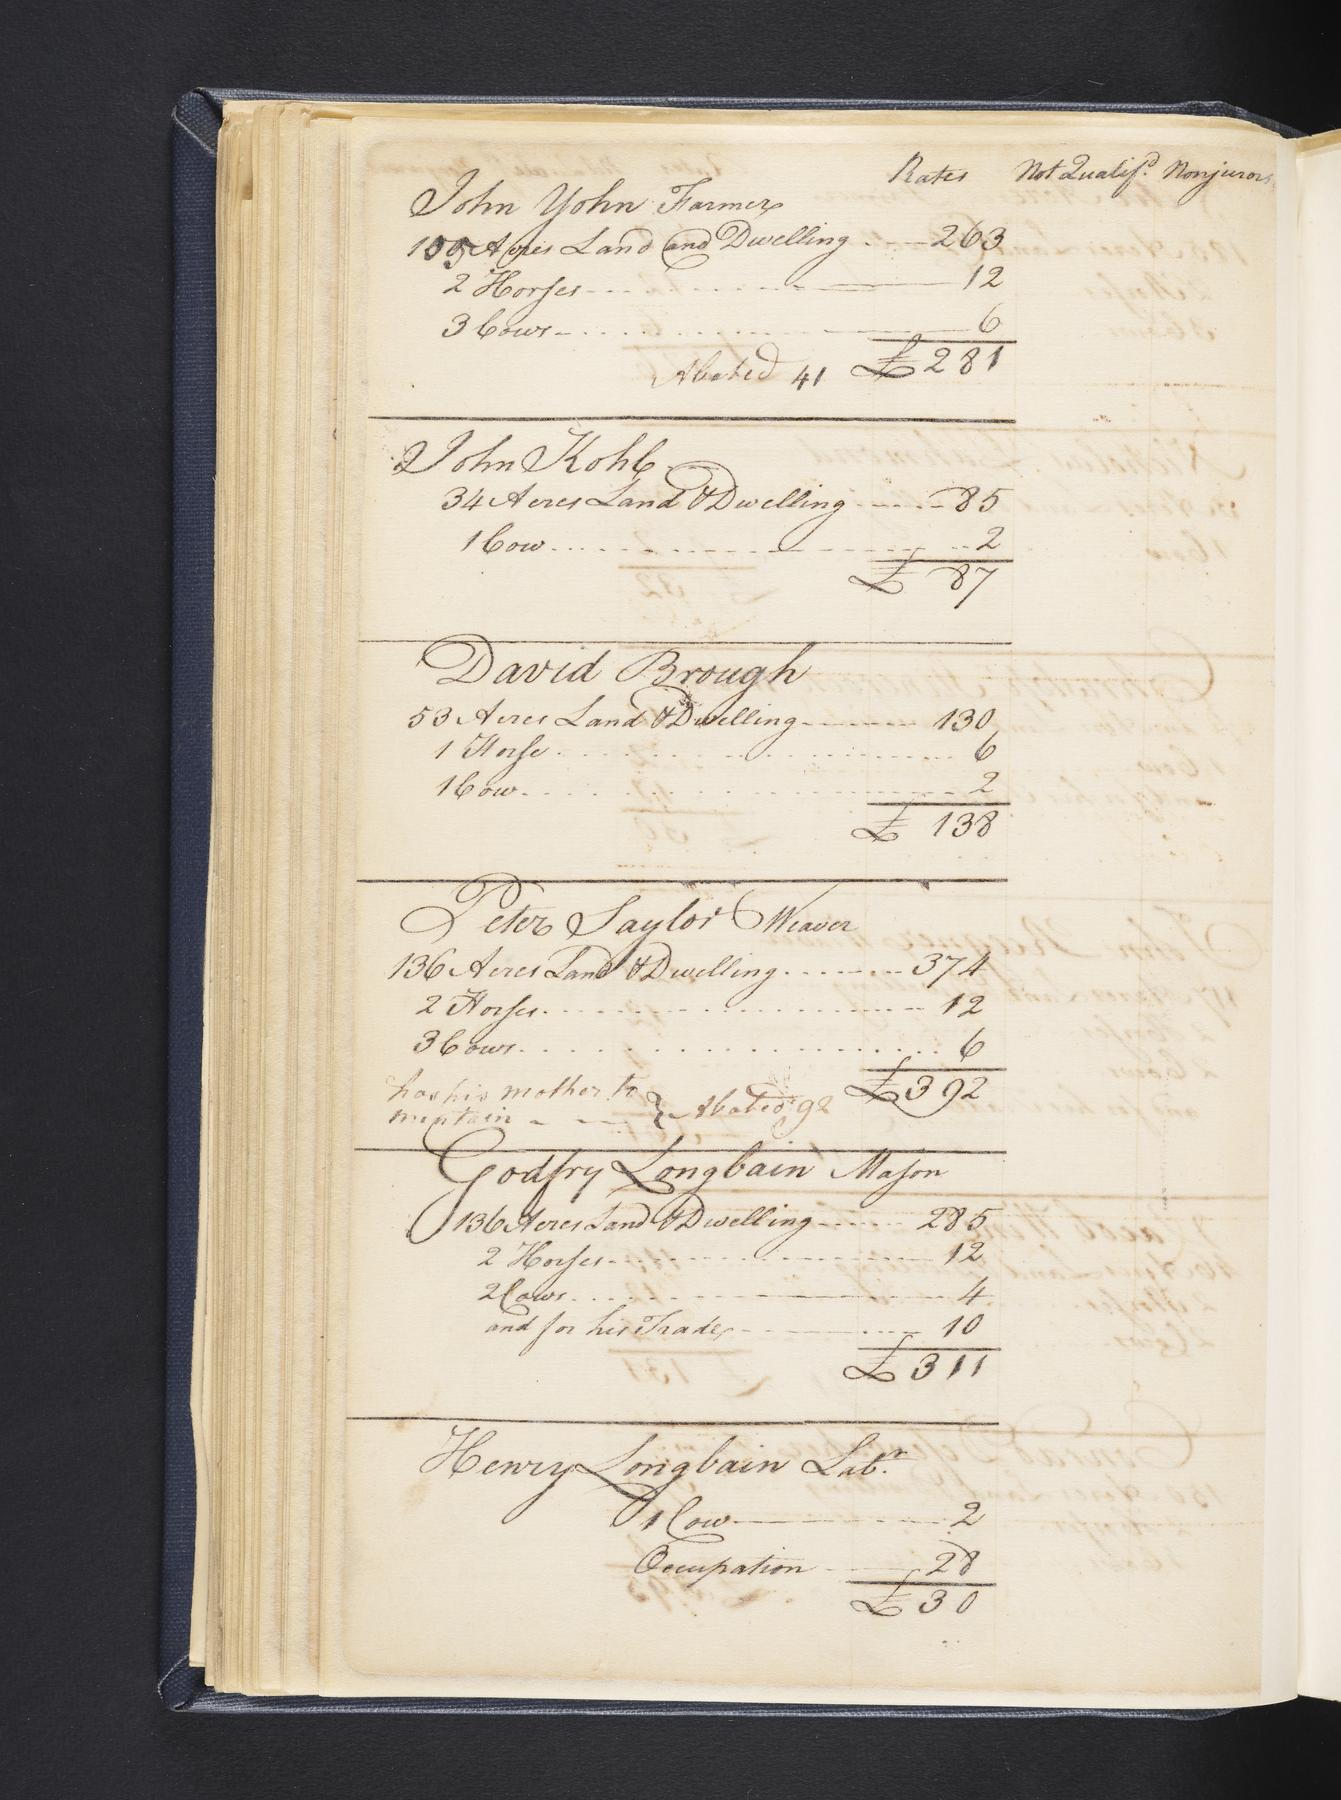 Rates Not Qualifd. Nonjurors
John Yohn Farmer
109 Acres Land and Dwelling 263
2 Horses 12
3 Cows 6
Abated 41 £ 281
John Kohl
34 Acres Land & Dwelling 85
1 Cow 2
£ 87
David Brough
53 Acres Land & Dwelling 130
1 Horse 6
1 Cow 2
£ 138
Peter Saylor Weaver
136 Acres Land & Dwelling 374
2 Horses 12
3 Cows 6
has his mother to £ 392
mentain } Abated 92
Godfry Longbain Mason
136 Acres Land & Dwelling 285
2 Horses 12
2 Cows 4
and for his Trade 10
£ 311
Henry Longbain Labr.
1 Cow 2
Occupation 28
£ 30